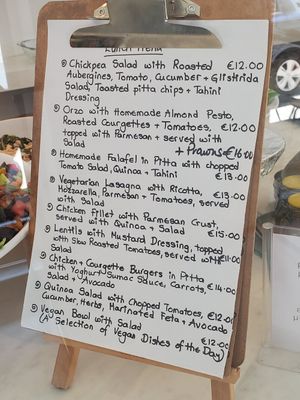 Lunch Menu
Chickpea Salad with Roasted €12.00
Aubergines, Tomato, Cucumber + Glistrida
Salad, Toasted pitta chips + Tahini
Dressing
Orzo with Homemade Almond Pesto,
Roasted Courgettes + Tomatoes, €12.00
topped with Parmesan + served with
Salad + Prawns €16.00
Homemade Falafel in Pitta with chopped
Tomato Salad, Quinoa + Tahini €13.00
Vegetarian Lasagna with Ricotta, €13.00
Mozzarella, Parmesan + Tomatoes, served
with Salad
Chicken Fillet with Parmesan Crust,
served with Quinoa + Salad €15.00
Lentils with Mustard Dressing, topped
with Slow Roasted Tomatoes, served with €11.00
Salad
Chicken + Courgette Burgers in Pitta
with Yoghurt Sumac Sauce, Carrots, €14.00
Salad + Avocado
Quinoa Salad with Chopped Tomatoes, €12.00
Cucumber, Herbs, Marinated Feta + Avocado
Vegan Bowl with Salad €12.00
(A Selection of Vegan Dishes of the Day)